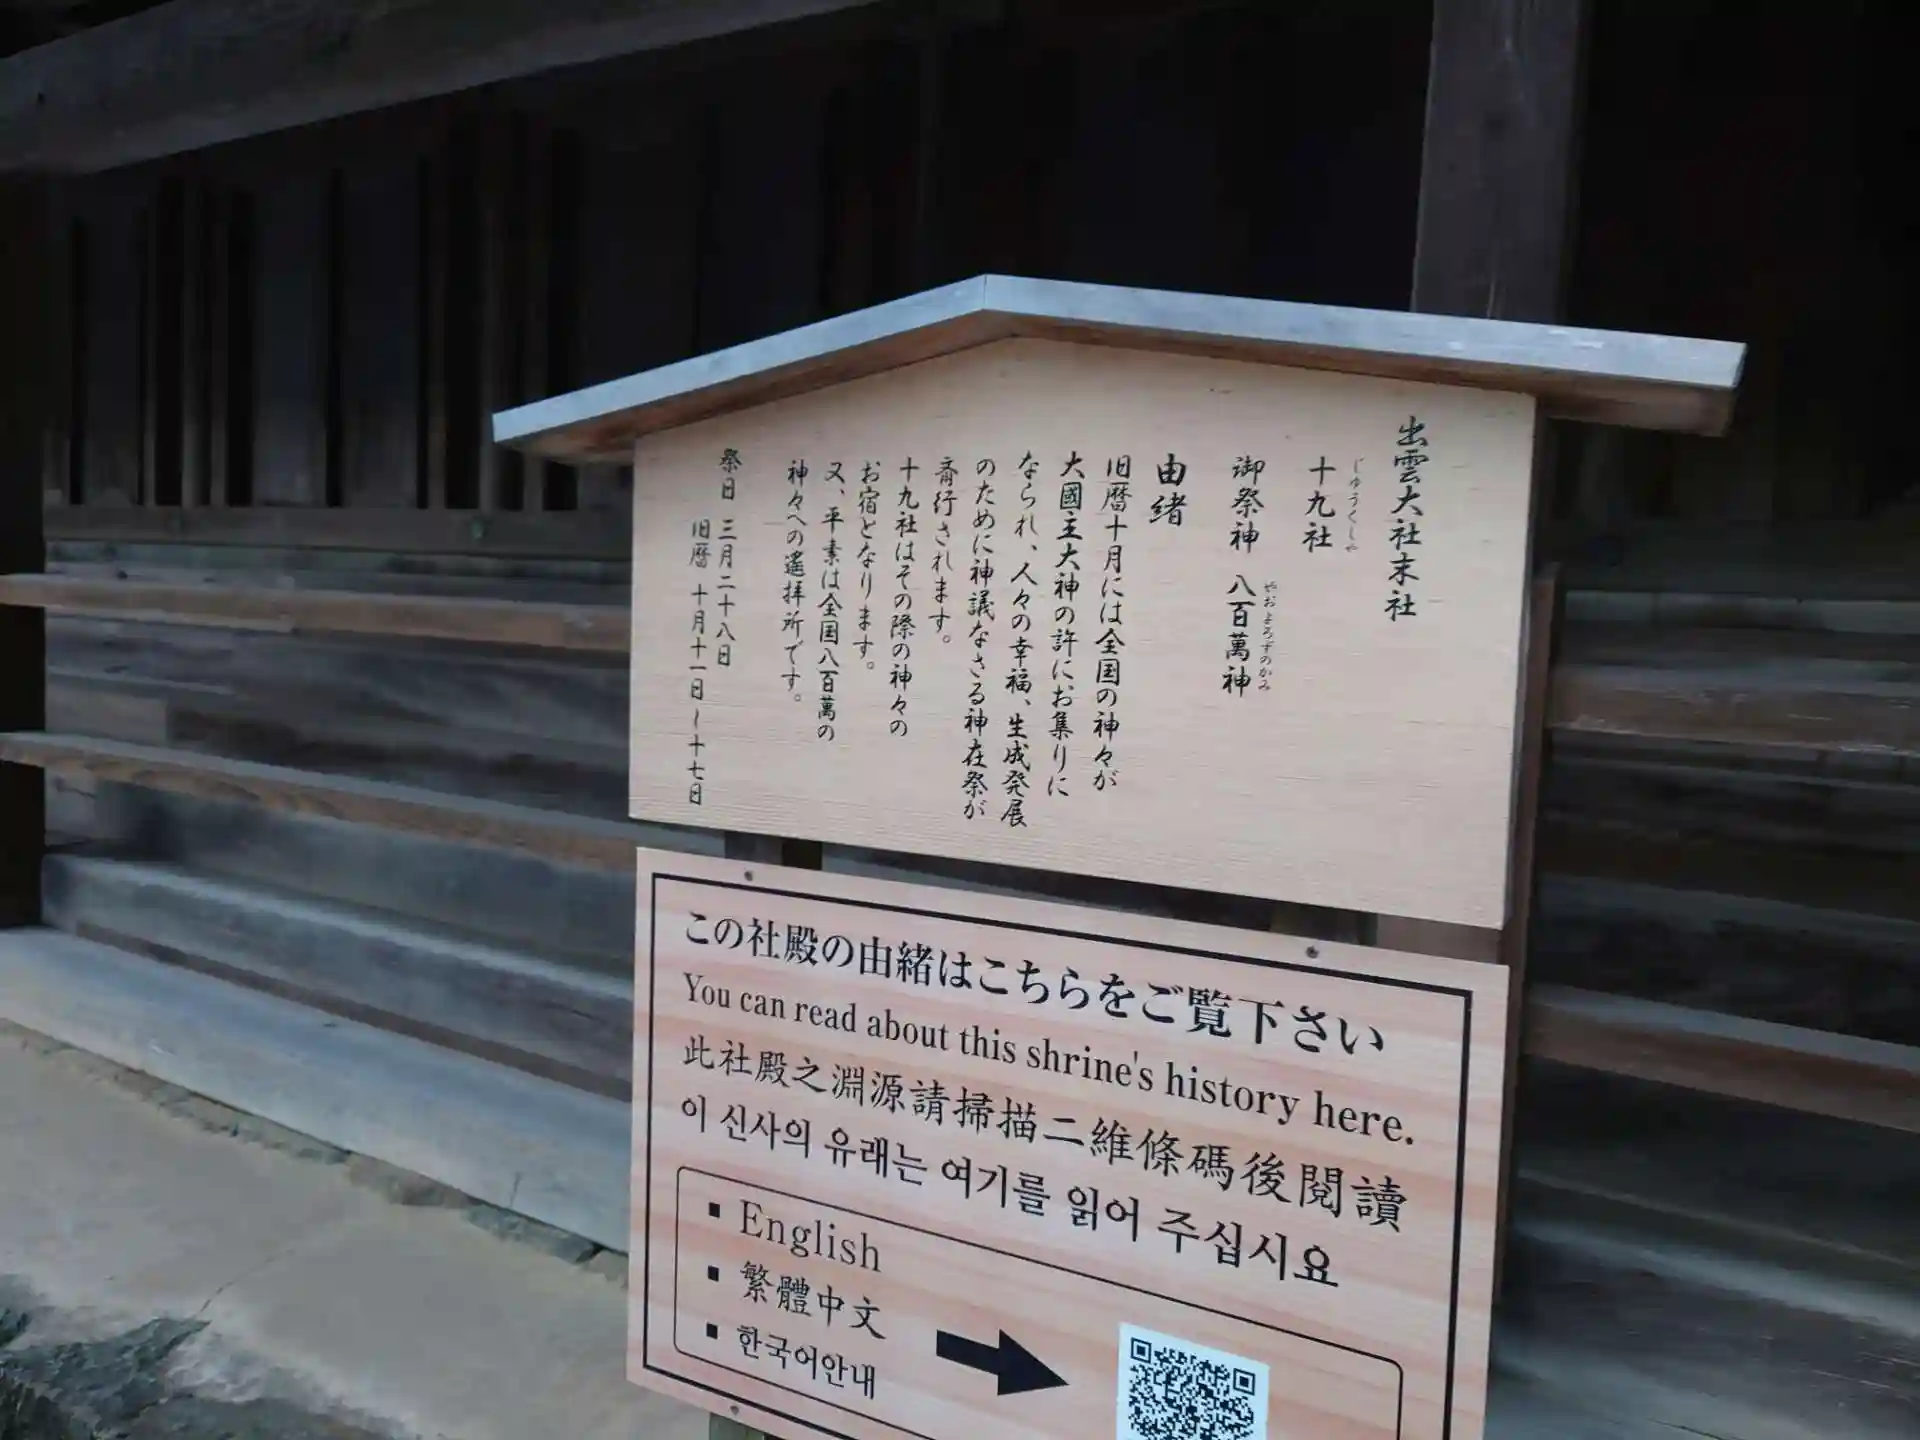 出雲大社末社
じゅうくしゃ
十九社
御祭神 八百萬神
やおよろずのかみ
由緒
旧暦十月には全国の神々が
大國主大神の許にお集りに
なられ、人々の幸福、生成発展
のために神議なさる神在祭が
斎行されます。
十九社はその際の神々の
お宿となります。
又、平素は全国八百萬の
神々への遙拝所です。
祭日 三月二十八日
旧暦 十月十一日〜十七日
この社殿の由緒はこちらをご覧下さい
You can read about this shrine's history here.
此社殿之淵源請掃描二維條碼後閱讀
이 신사의 유래는 여기를 읽어 주십시요
▪ English
▪ 繁體中文
▪ 한국어안내